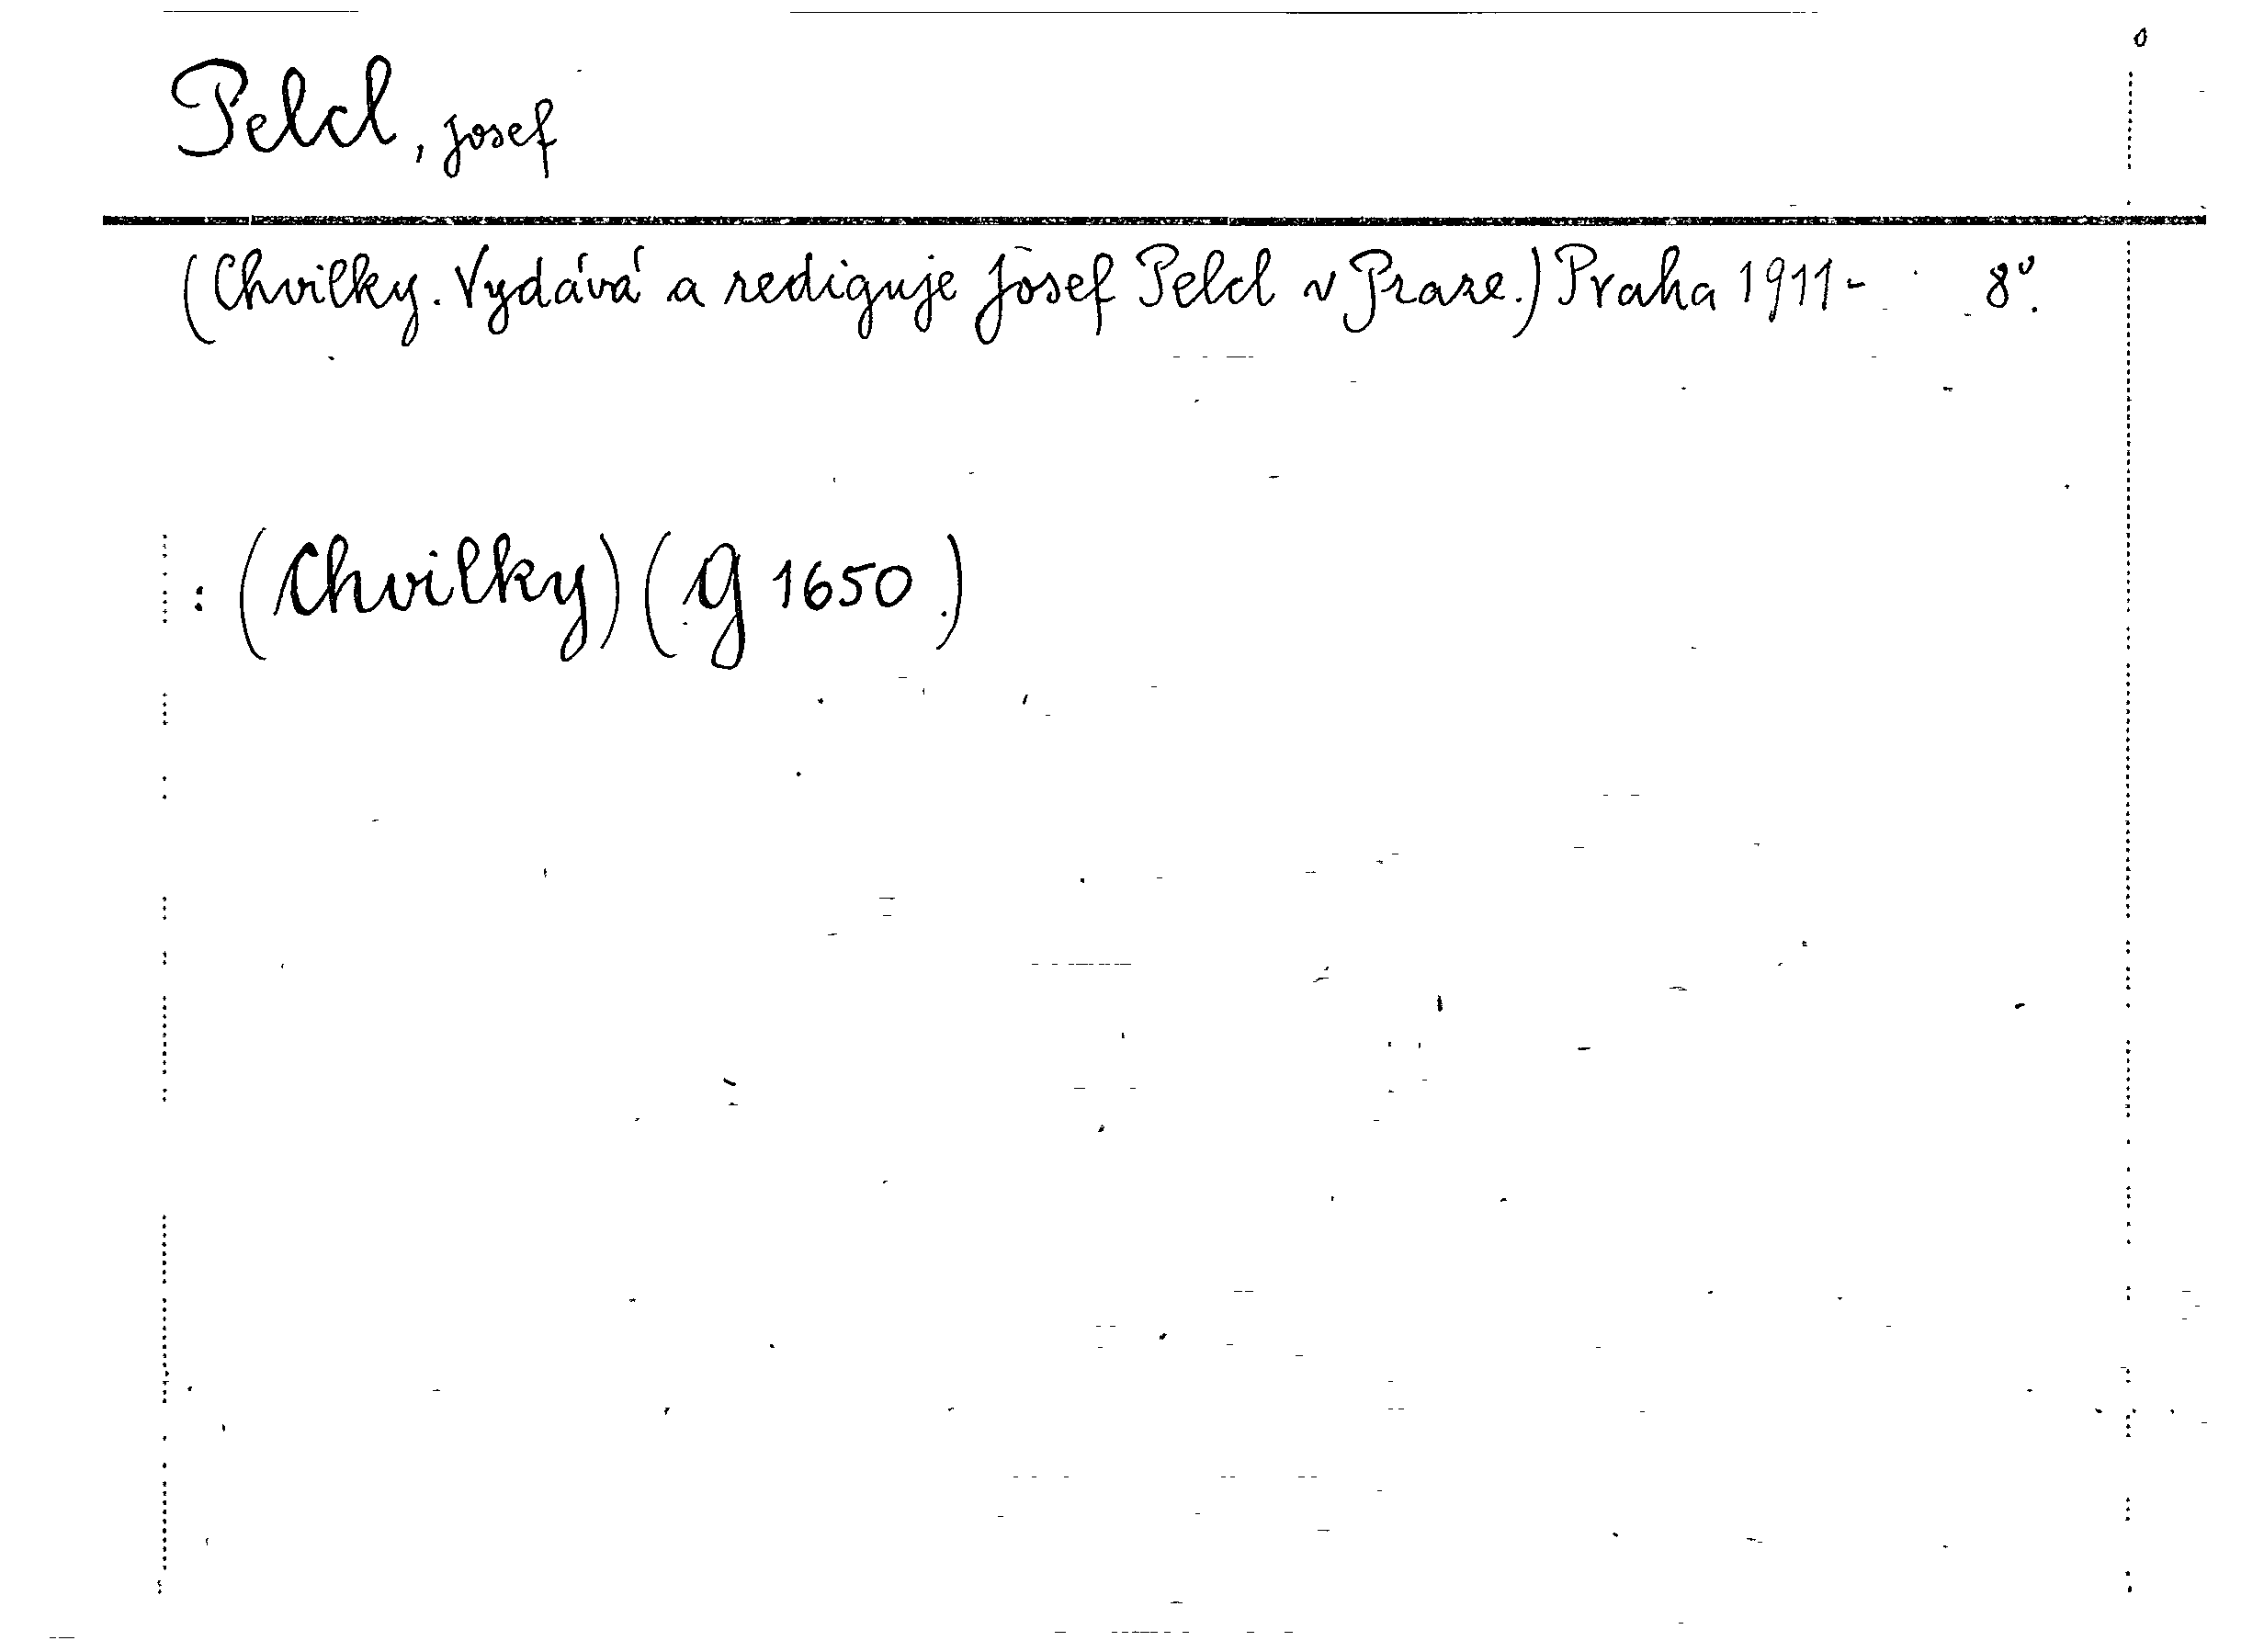 Pelcl, Josef
(Chvilky. Vydává a rediguje Josef Pelcl v Praze.) Praha 1911- 8°.
: (Chvilky) (g 1650.)